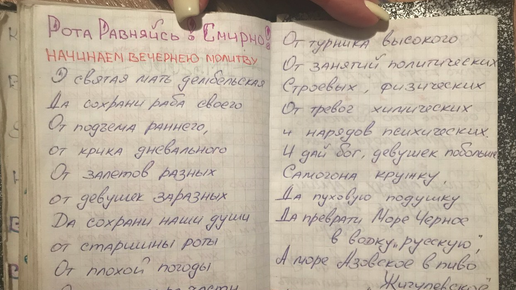 Рота Равняйсь! Смирно!
НАЧИНАЕМ ВЕЧЕРНЕЮ МОЛИТВУ
О святая мать дембельская
Да сохрани раба своего
От подъема раннего,
от крика дневального
От залетов разных
от девушек заразных
Да сохрани наши души
от старшины роты
От плохой погоды
части
От турника высокого
От занятий политических
Строевых, физических
От тревог химических
и нарядов психических.
И дай бог, девушек побольше
Самогона кружку,
Да пуховую подушку
Да преврати Море Черное
в водку „русскую",
А море Азовское в пиво
„Жигулевское"